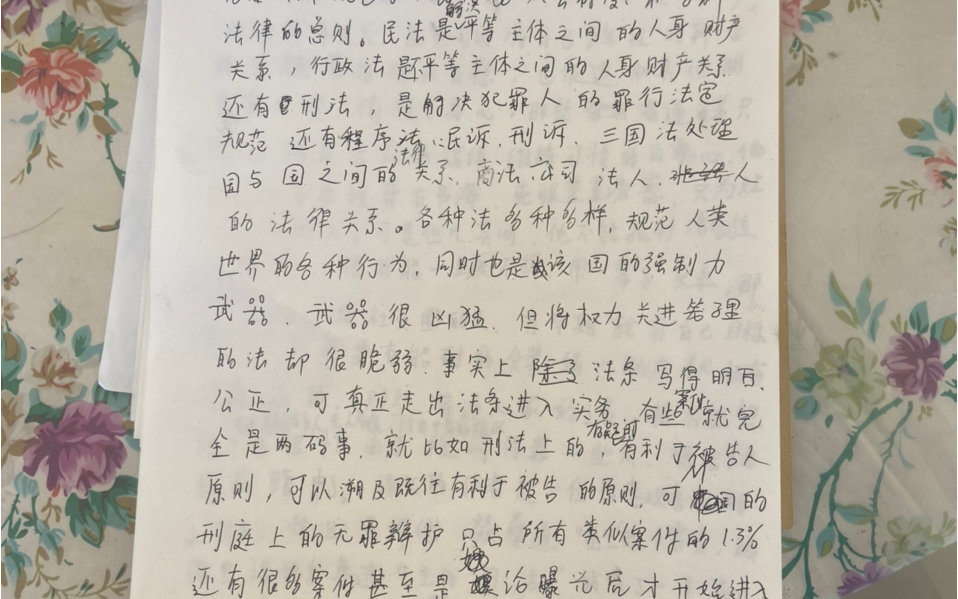 法律的总则。民法是解决平等主体之间的人身财产
关系，行政法是不平等主体之间的人身财产关系
还有刑法，是解决犯罪人的罪行法定
规范 还有程序法：民诉、刑诉、三国法处理
国与国之间的法律关系，商法、公司 法人、人
的法律关系。各种法多种多样，规范人类
世界的各种行为，同时也是该国的强制力
武器。武器很凶猛，但将权力关进管理
的法却很脆弱。事实上 法条写得明白、
公正，可真正走出法条进入实务 有些案件就完
全是两码事，就比如刑法上的有利于被告人
原则，可以溯及既往有利于被告的原则，可中国的
刑庭上的无罪辩护 只占所有类似案件的1.3%
还有很多案件甚至是 论曝光后才开始进入